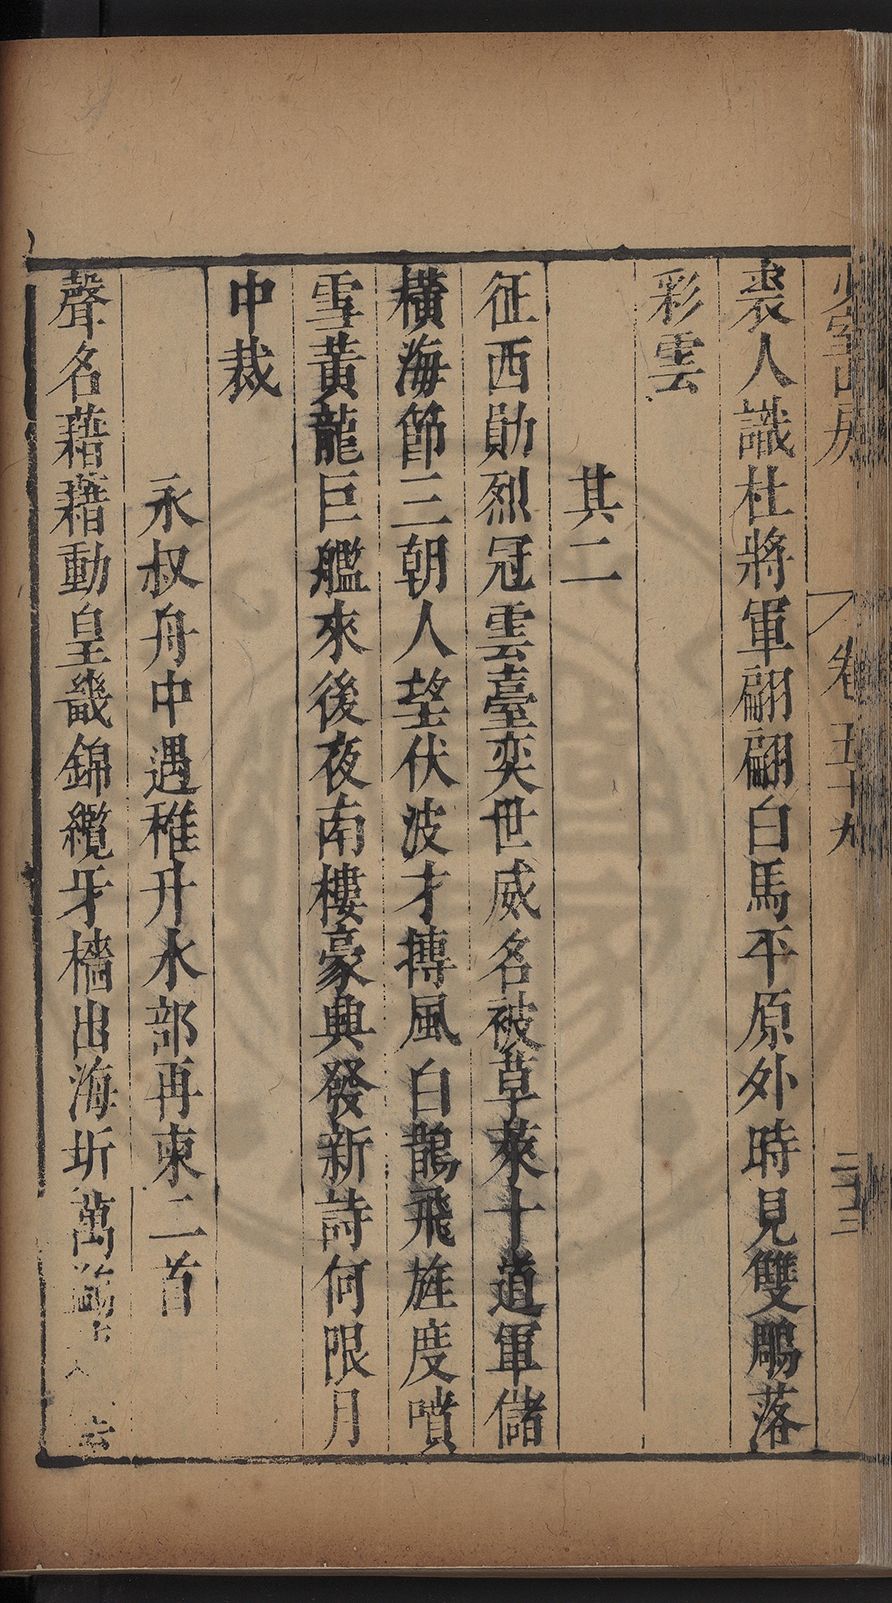 少室山房
卷五十九
二十三
裘人識杜將軍翩翩白馬平原外時見雙鵰落
彩雲
其二
征西勛烈冠雲臺奕世威名被草萊十道軍儲
橫海節三朝人望伏波才摶風白鷁飛旌度噴
雪黃龍巨艦來後夜南樓豪興發新詩何限月
中裁
永叔舟中遇稚升水部再柬二首
聲名藉藉動皇畿錦纜牙檣出海圻萬